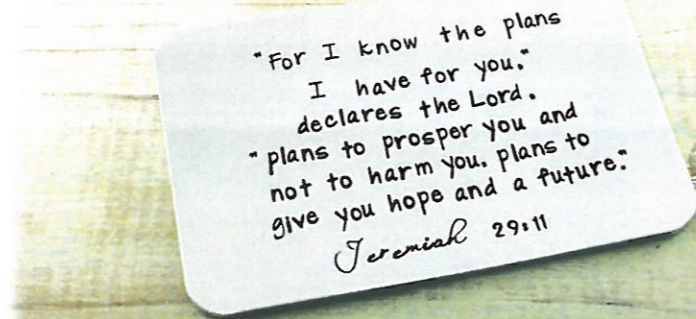 "For I know the plans
I have for you."
declares the Lord.
"plans to prosper you and
not to harm you. plans to
give you hope and a future."
Jeremiah 29:11